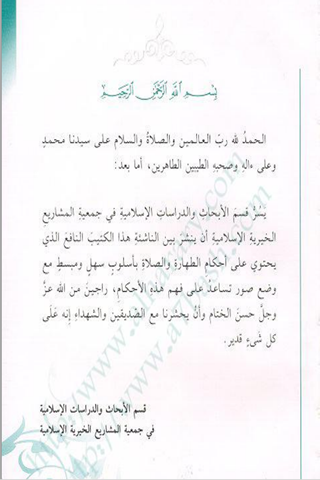 بِسْمِ اللَّهِ الرَّحْمَٰنِ الرَّحِيمِ
الحمدُ لله ربّ العالمين والصلاةُ والسلام على سيدنا محمدٍ
وعلى ءاله وصحبهِ الطيبين الطاهرين، أما بعد:
يسُرُّ قسم الأبحاث والدراسات الإسلامية في جمعية المشاريع
الخيرية الإسلامية أن ينشرَ بين الناشئةِ هذا الكتيبَ النافعَ الذي
يحتوي على أحكامِ الطهارةِ والصلاةِ بأسلوبٍ سهلٍ ومبسطٍ مع
وضع صور تساعدُ على فهم هذه الأحكام، راجينَ من الله عزَّ
وجلَّ حسنَ الختام وأنْ يحشرنا مع الصّديقين والشهداءِ إنه عَلَى
كل شَىءٍ قدير.
قسم الأبحاث والدراسات الإسلامية
في جمعية المشاريع الخيرية الإسلامية